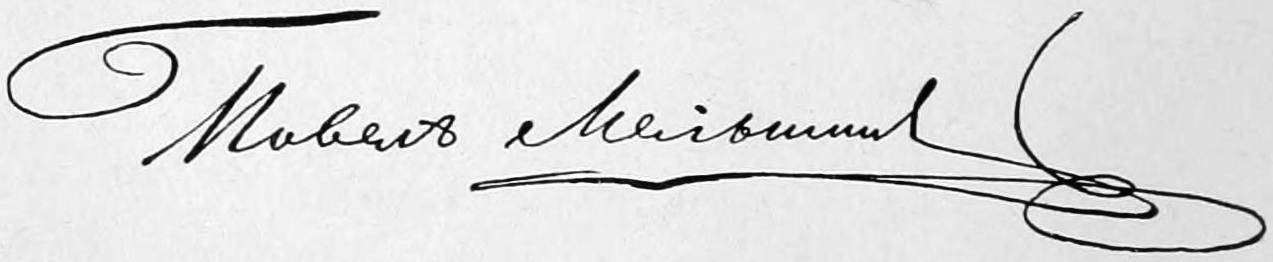 Павелъ Мельник